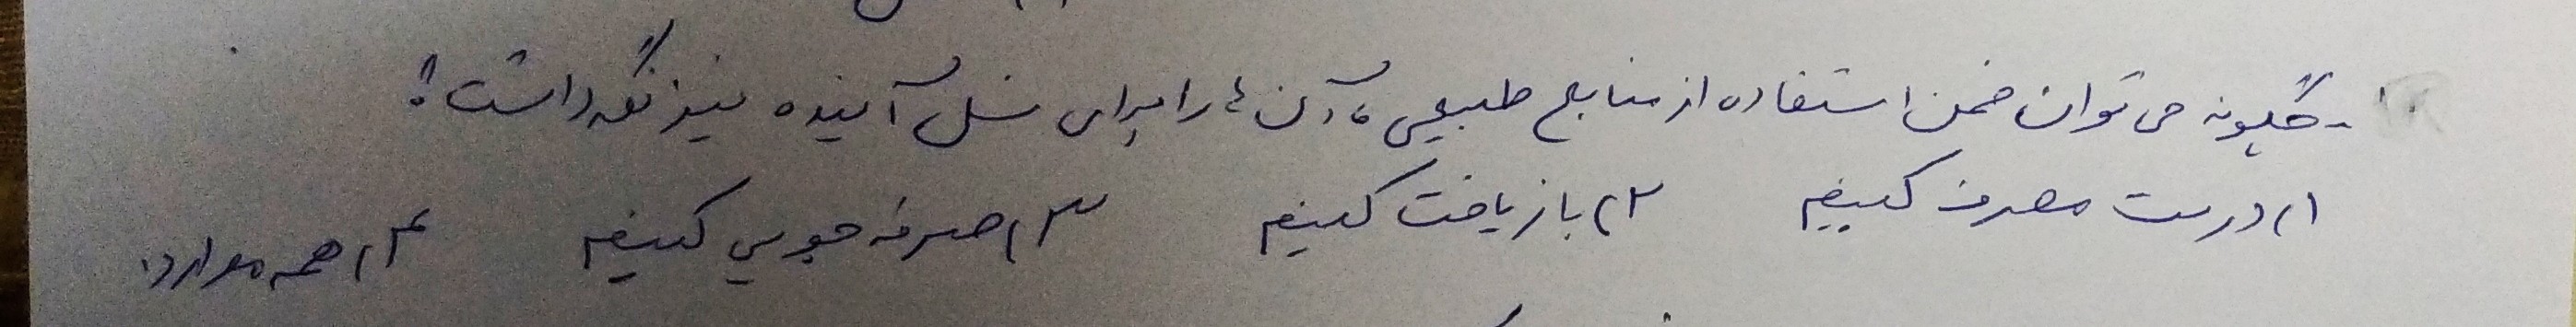 - چگونه می توان ضمن استفاده از منابع طبیعی، آن ها را برای نسل آینده نیز نگه داشت؟
۱) درست مصرف کنیم ۲) بازیافت کنیم ۳) صرفه جویی کنیم ۴) همه موارد.